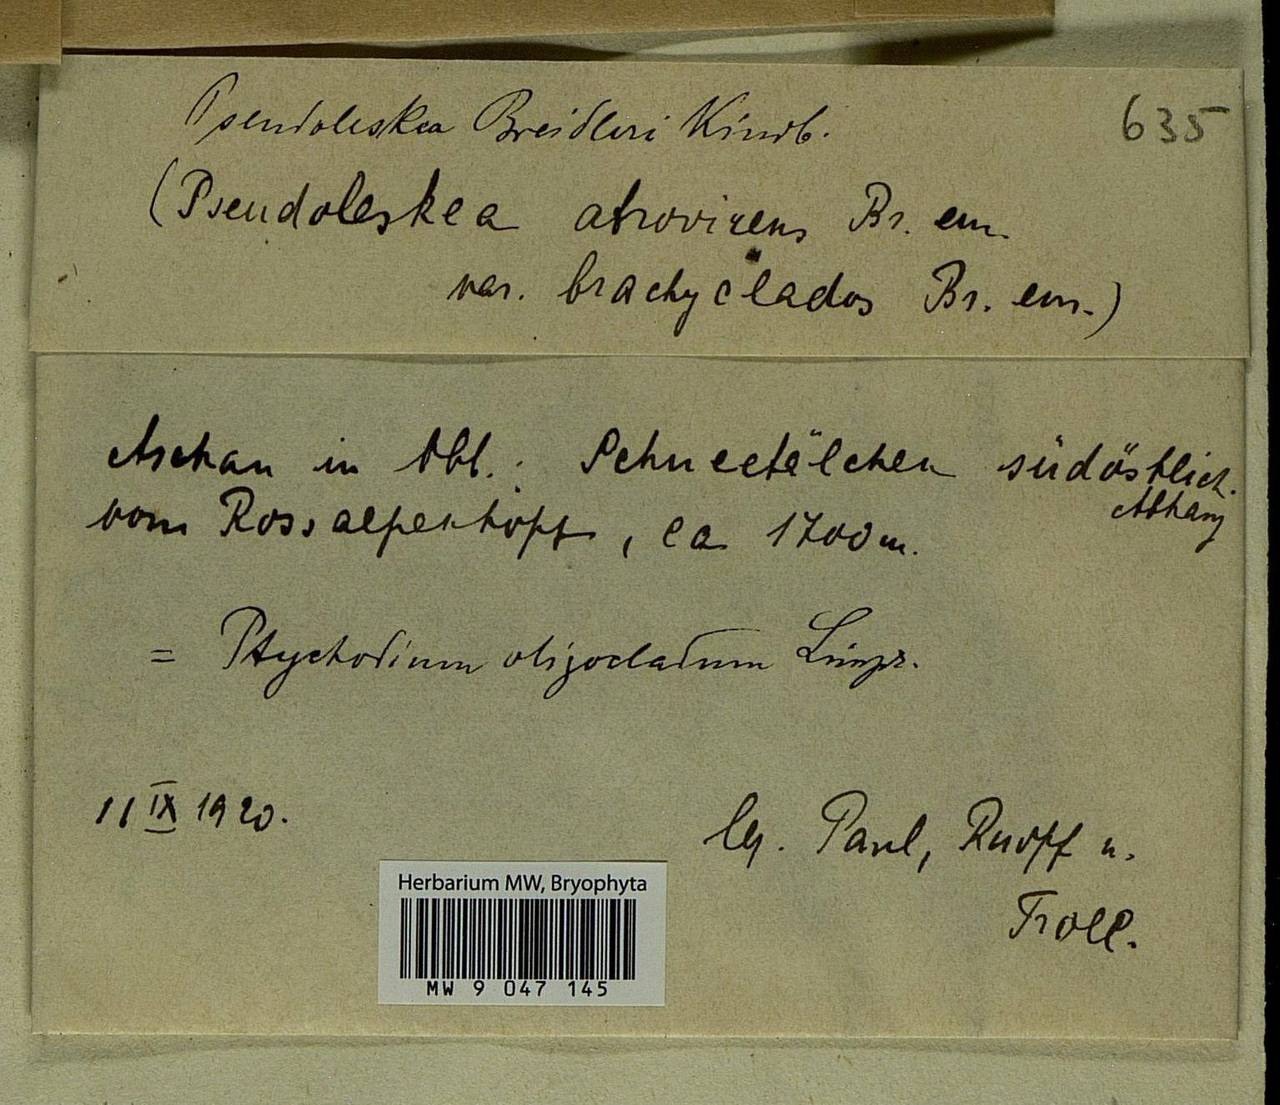 Pseudoleskea Breidleri Kindb.
635
(Pseudoleskea atrovirens Br. eur.
var. brachyclados Br. eur.)
Aschau in Obb.: Schneetälchen südöstlich.
Abhang
vom Rossalpenkopf, ca 1700 m.
= Ptychodium oligocladum Limpr.
11 IX 1920.
lg. Paul, Ruopf u.
Troll.
Herbarium MW, Bryophyta
MW 9 047 145